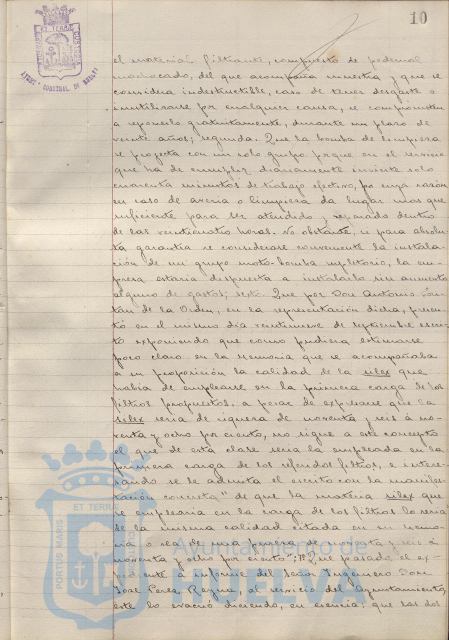 10
PORTUS MARIS ET TERRAE CUSTODIA
el material filtrante, compuesto de pedernal
machacado, del que acompaña muestra y que se
considera indestructible, caso de tener desgaste o
inutilizarse por cualquier causa, se comprometen
a reponerlo gratuitamente, durante un plazo de
veinte años; segunda. Que la bomba de limpieza
se proyecta con un solo grupo porque en el servicio
que ha de cumplir diariamente invierte solo
cuarenta minutos de trabajo efectivo, por cuya razón
en caso de averia o limpieza da lugar mas que
suficiente para ser atendido y reparado dentro
de las veinticuatro horas. No obstante, si para absolu-
ta garantia se considerase conveniente la instala-
ción de un grupo moto-bomba supletorio, la em-
presa estaria dispuesta a instalarlo sin aumento
alguno de gastos; sexto. Que por Don Antonio
de la Orden, en la representación dicha, presen-
tó en el mismo dia veintinueve de septiembre escri-
to exponiendo que como pudiera estimarse
poco claro en la Memoria que se acompañaba
a su proposición la calidad de la silex que
habia de emplearse en la primera carga de los
filtros propuestos, a pesar de expresarse que la
silex seria de riqueza de noventa y seis á no-
venta y ocho por ciento, no sigue a este concepto
el que de esta clase seria la empleada en la
primera carga de los referidos filtros, e intere-
sando se se admita el escrito con la manifes-
tación concreta "de que la materia silex que
se emplearia en la carga de los filtros lo seria
de la misma calidad citada en su memo-
ria o sea de una pureza de noventa y seis á
noventa y ocho por ciento"; pasado el ex-
pediente a informe del Señor Ingeniero Don
José Perea Reyna, al servicio del Ayuntamiento,
este lo evacuó diciendo, en esencia: que las dos
PORTUS MARIS ET TERRAE CUSTODIA
Ayuntamiento de
HUELVA